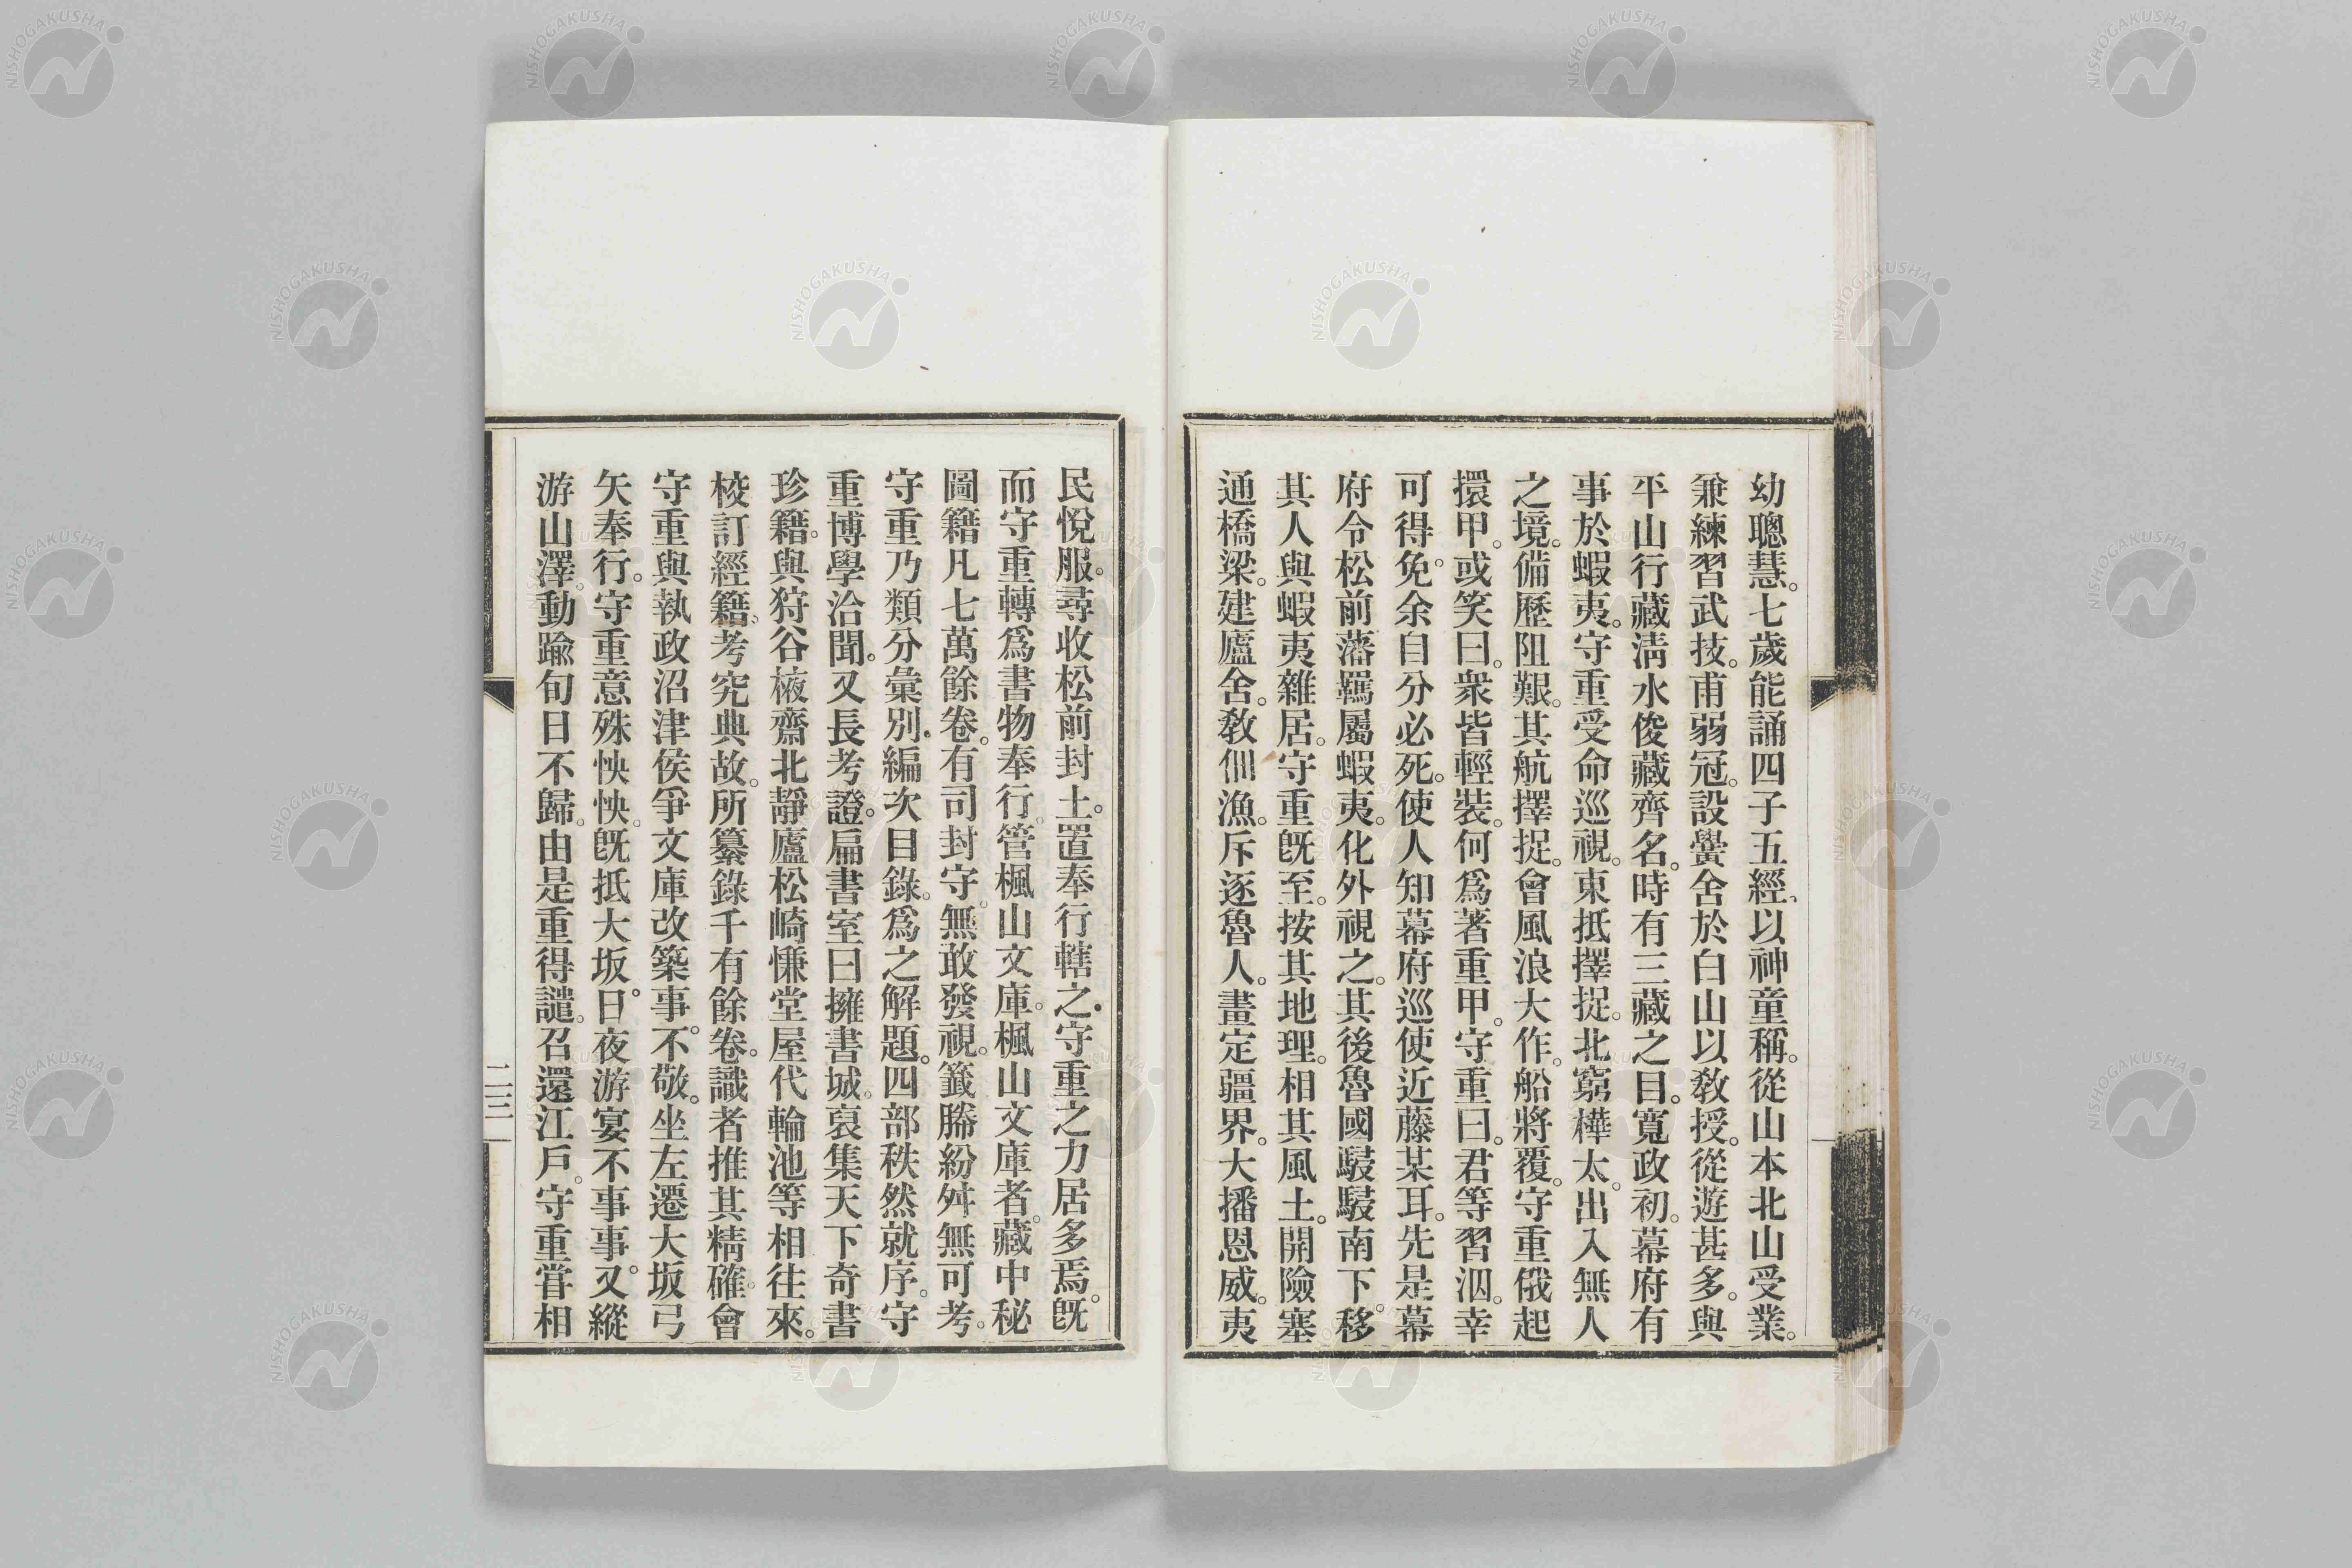 幼聰慧。七歲能誦四子五經。以神童稱。從山本北山受業。
兼練習武技。甫弱冠。設黌舍於白山以敎授。從遊甚多。與
平山行藏淸水俊藏齊名。時有三藏之目。寬政初。幕府有
事於蝦夷。守重受命巡視。東抵擇捉。北窮樺太。出入無人
之境。備歷阻艱。其航擇捉。會風浪大作。船將覆。守重俄起
擐甲。或笑曰。衆皆輕裝。何爲著重甲。守重曰。君等習泅。幸
可得免。余自分必死。使人知幕府巡使近藤某耳。先是幕
府令松前藩羈屬蝦夷。化外視之。其後魯國駸駸南下。移
其人與蝦夷雜居。守重旣至。按其地理。相其風土。開險塞
通橋梁。建廬舍。敎佃漁。斥逐魯人。畫定疆界。大播恩威。夷
民悅服。尋收松前封土。置奉行轄之。守重之力居多焉。旣
而守重轉爲書物奉行。管楓山文庫。楓山文庫者。藏中秘
圖籍凡七萬餘卷。有司封守。無敢發視。籤勝紛舛無可考。
守重乃類分彙別。編次目錄。爲之解題。四部秩然就序。守
重博學洽聞。又長考證。扁書室曰擁書城。裒集天下奇書
珍籍。與狩谷棭齋北靜廬松崎慊堂屋代輪池等相往來。
校訂經籍。考究典故。所纂錄千有餘卷。識者推其精確。會
守重與執政沼津侯爭文庫改築事。不敬。坐左遷大坂弓
矢奉行。守重意殊怏怏。旣抵大坂。日夜游宴不事事。又縱
游山澤。動踰旬日不歸。由是重得譴。召還江戶。守重嘗相
二三
NISHOGAKUSHA